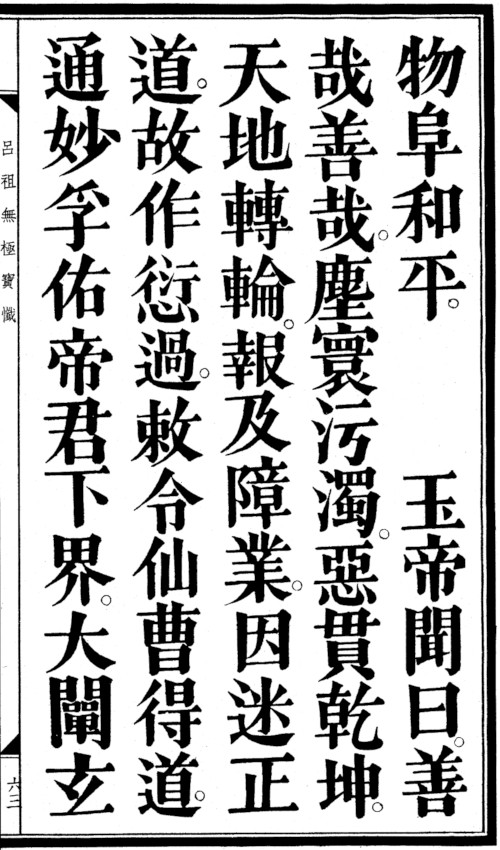 物阜和平。　玉帝聞曰。善
哉善哉。塵寰污濁。惡貫乾坤。
天地轉輪。報及障業。因迷正
道。故作愆過。敕令仙曹得道。
通妙孚佑帝君下界。大闡玄
呂祖無極寶懺
六三